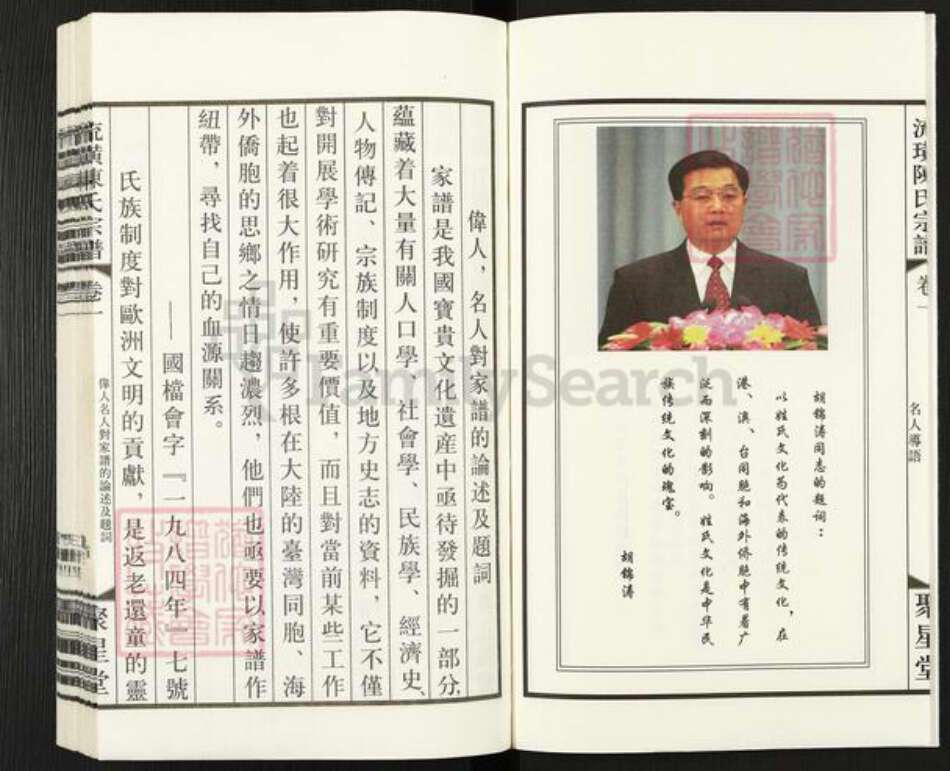 流璜陳氏宗譜
卷一
名人導語
聚星堂
胡錦濤同志的题词：
以姓氏文化为代表的传统文化，在
港、澳、台同胞和海外侨胞中有着广
泛而深刻的影响。姓氏文化是中华民
族传统文化的瑰宝。
胡錦濤
偉人，名人對家譜的論述及題詞
家譜是我國寶貴文化遺産中亟待發掘的一部分，
蕴藏着大量有關人口學、社會學、民族學、經濟史、
人物傳記、宗族制度以及地方史志的資料，它不僅
對開展學術研究有重要價值，而且對當前某些工作
也起着很大作用，使許多根在大陸的臺灣同胞、海
外僑胞的思鄉之情日趨濃烈，他們也亟要以家譜作
紐帶，尋找自己的血源關系。
——國檔會字『一九八四年』七號
氏族制度對歐洲文明的貢獻，是返老還童的靈
偉人名人對家譜的論述及題詞
卷一
聚星堂
FamilySearch